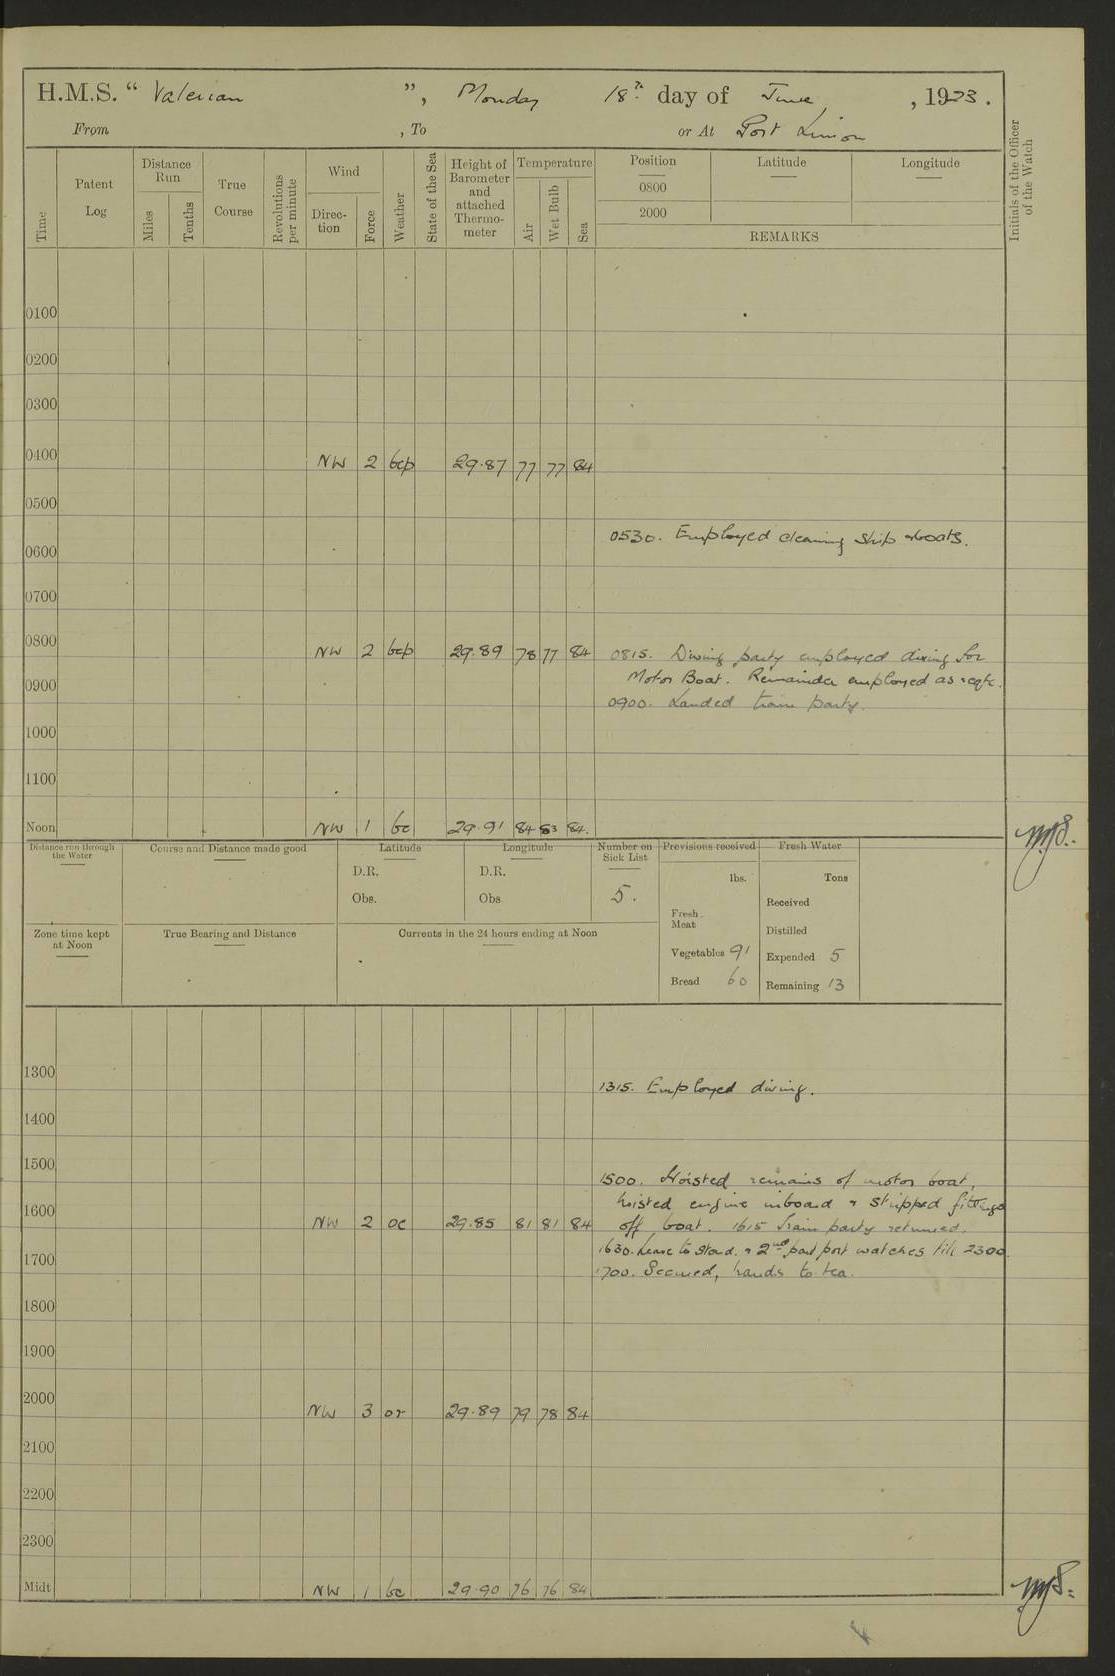 H.M.S. “ Valerian ”, Monday 18th day of June, 1923.
From , To or At Port Limon
Time
Patent Log
Distance Run
Miles
Tenths
True Course
Revolutions per minute
Wind
Direction
Force
Weather
State of the Sea
Height of Barometer and attached Thermometer
Temperature
Air
Wet Bulb
Sea
Position
Latitude
Longitude
0800
2000
REMARKS
Initials of the Officer of the Watch
0100
0200
0300
0400 NW 2 bcp 29.87 77 77 84
0500
0530. Employed cleaning ship & boats.
0600
0700
0800 NW 2 bcp 29.89 78 77 84 0815. Diving party employed diving for
Motor Boat. Remainder employed as reqte.
0900
0900. Landed train party.
1000
1100
Noon NW 1 bc 29.91 84 83 84.
Distance run through the Water
Course and Distance made good
Latitude
D.R.
Obs.
Longitude
D.R.
Obs
Number on Sick List
5.
Provisions received
lbs.
Fresh Meat
Vegetables 91
Bread 60
Fresh Water
Tons
Received
Distilled
Expended 5
Remaining 13
Zone time kept at Noon
True Bearing and Distance
Currents in the 24 hours ending at Noon
1300
1315. Employed diving.
1400
1500
1500. Hoisted remains of motor boat,
hoisted engine inboard & stripped fittings
1600 NW 2 oc 29.85 81 81 84 off boat. 1615 Train party returned.
1630. Leave to Starbd. & 2nd part port watches till 2300.
1700
1700. Secured, hands to tea.
1800
1900
2000 NW 3 or 29.89 79 78 84
2100
2200
2300
Midt NW 1 bc 29.90 76 76 84